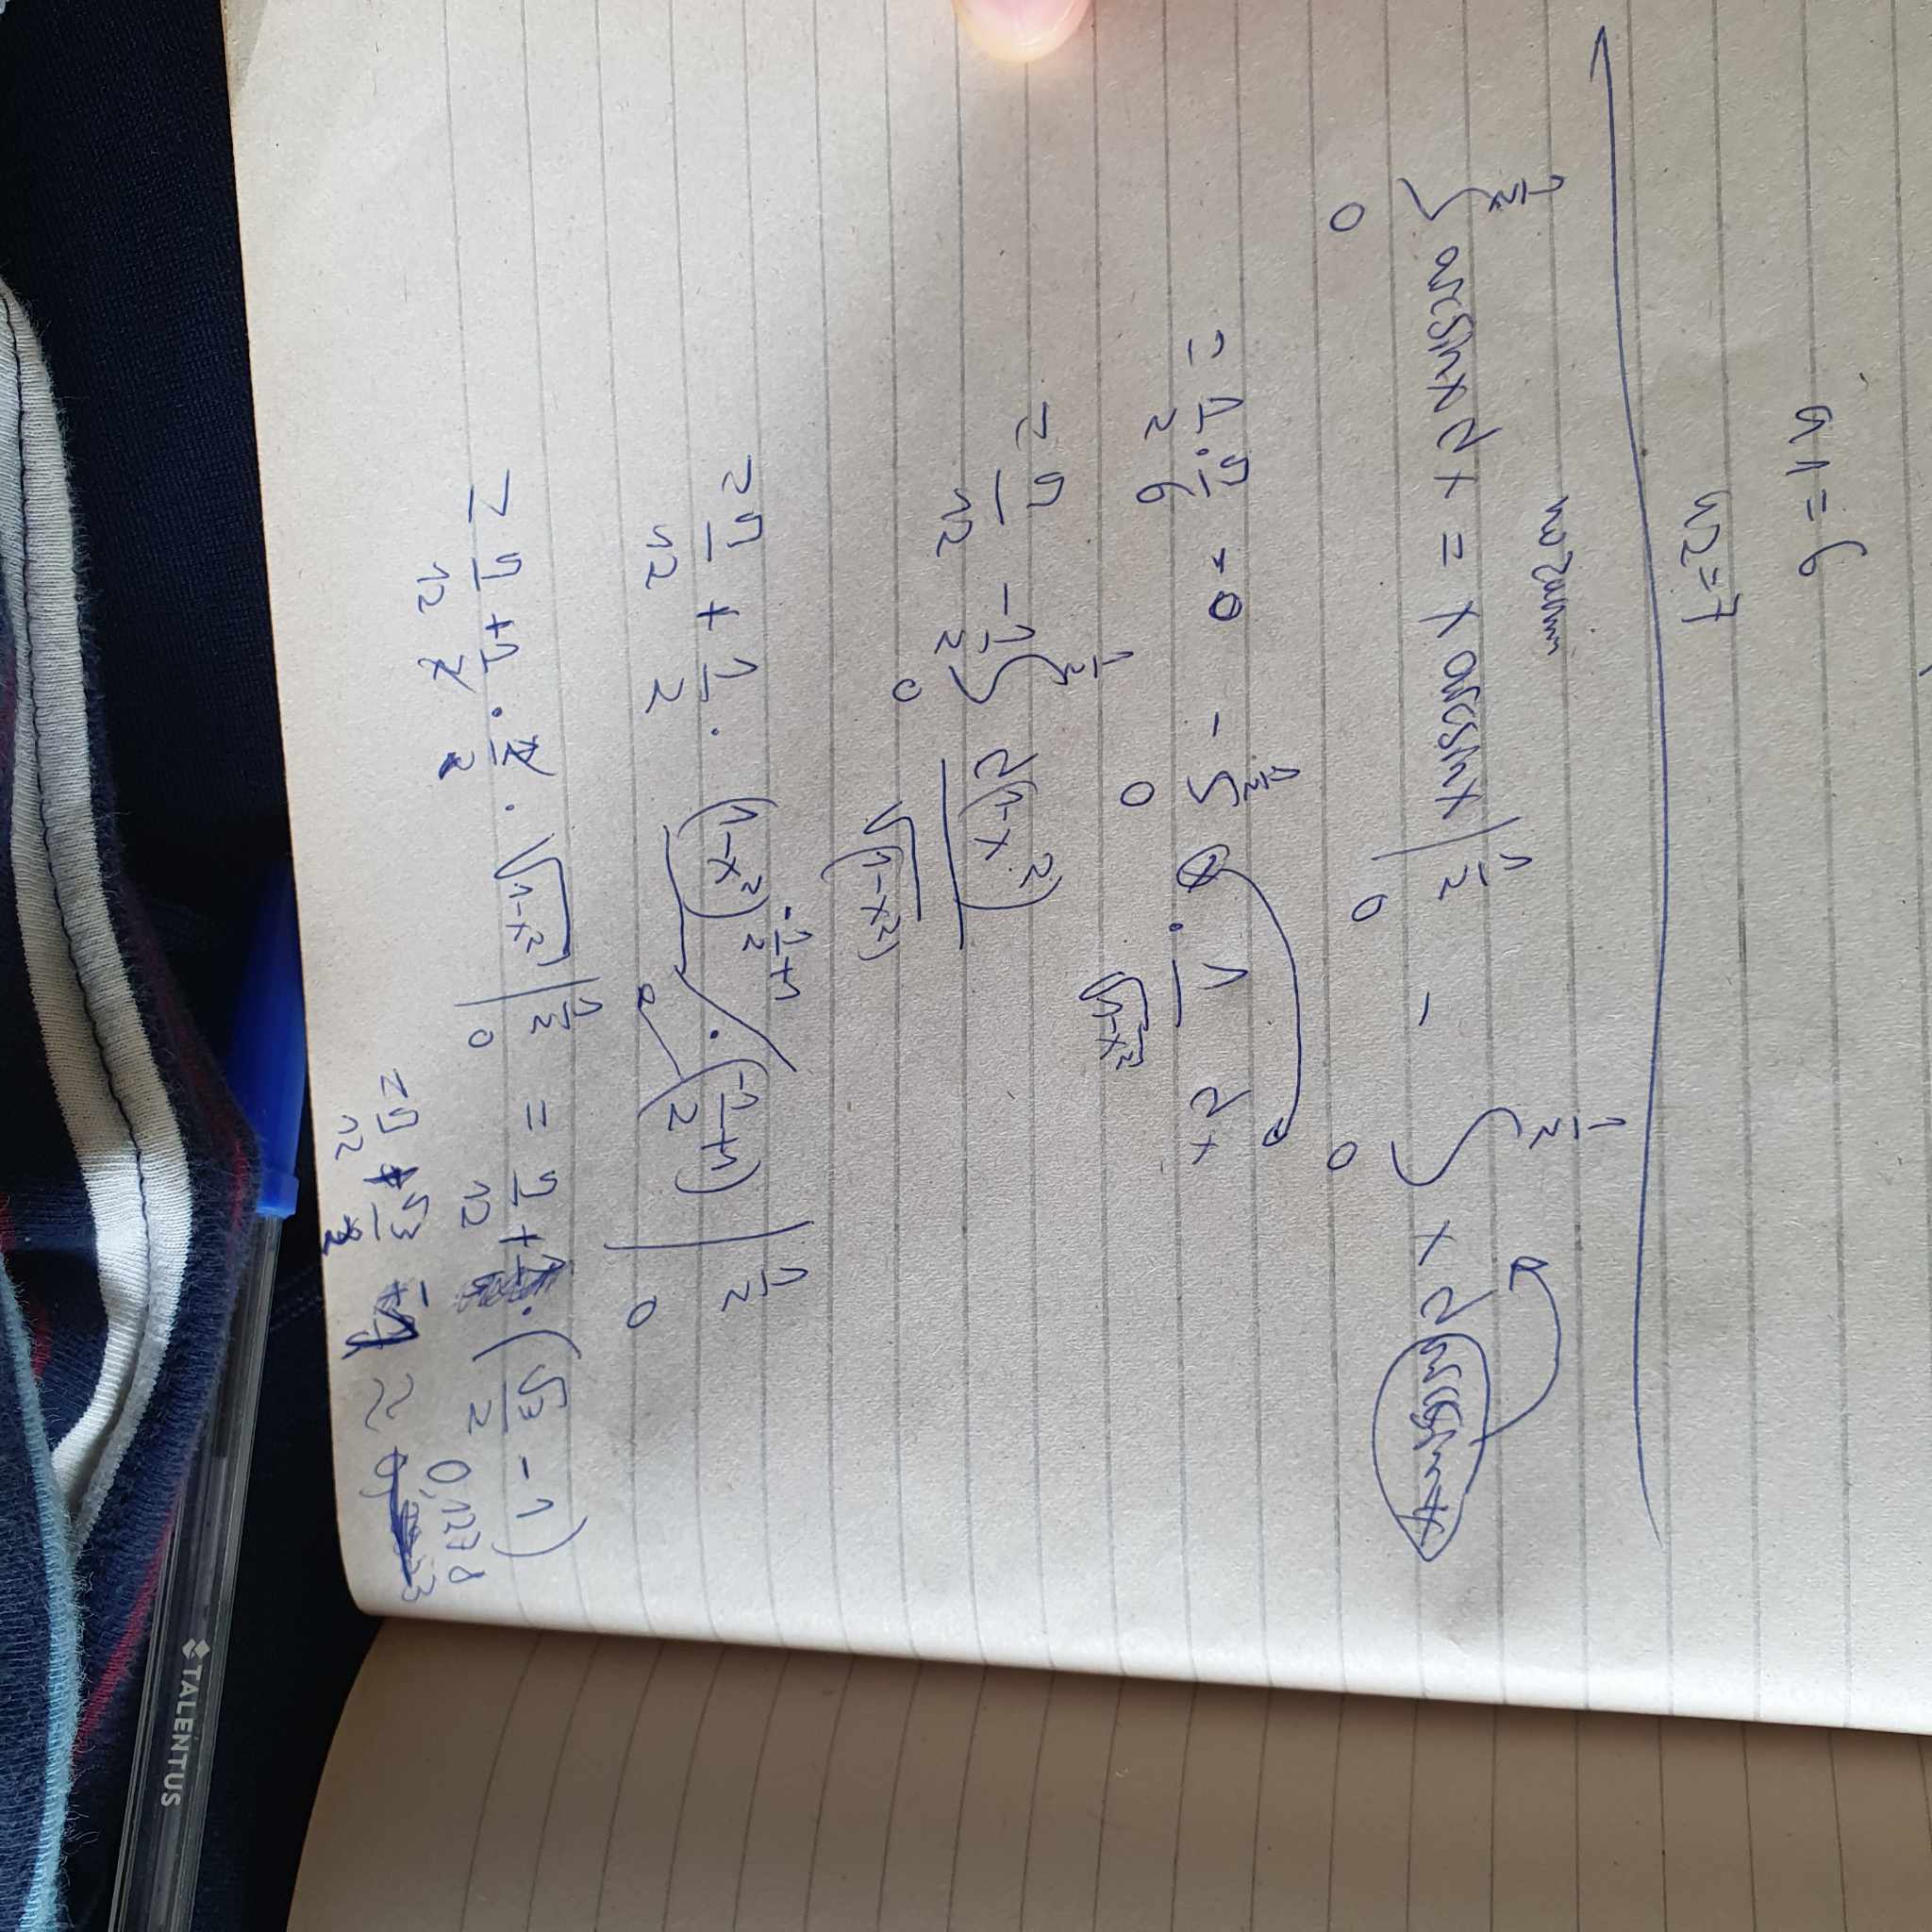 a1 = 6
a2 = 7
∫₀^{1/2} arcsinx dx = x arcsinx |₀^{1/2} - ∫₀^{1/2} x d(arcsinx)
= 1/2 · π/6 - 0 - ∫₀^{1/2} x · 1/√(1-x²) dx
= π/12 - 1/2 ∫₀^{1/2} d(1-x²)/√(1-x²)
= π/12 + 1/2 · (1-x²)^{-1/2+1} / · (-1/2+1) |₀^{1/2}
= π/12 + 1/2 · 2 · √(1-x²) |₀^{1/2} = π/12 + · (√3/2 - 1)
= π/12 + √3/2 - 1 ≈ 0,1278
TALENTUS